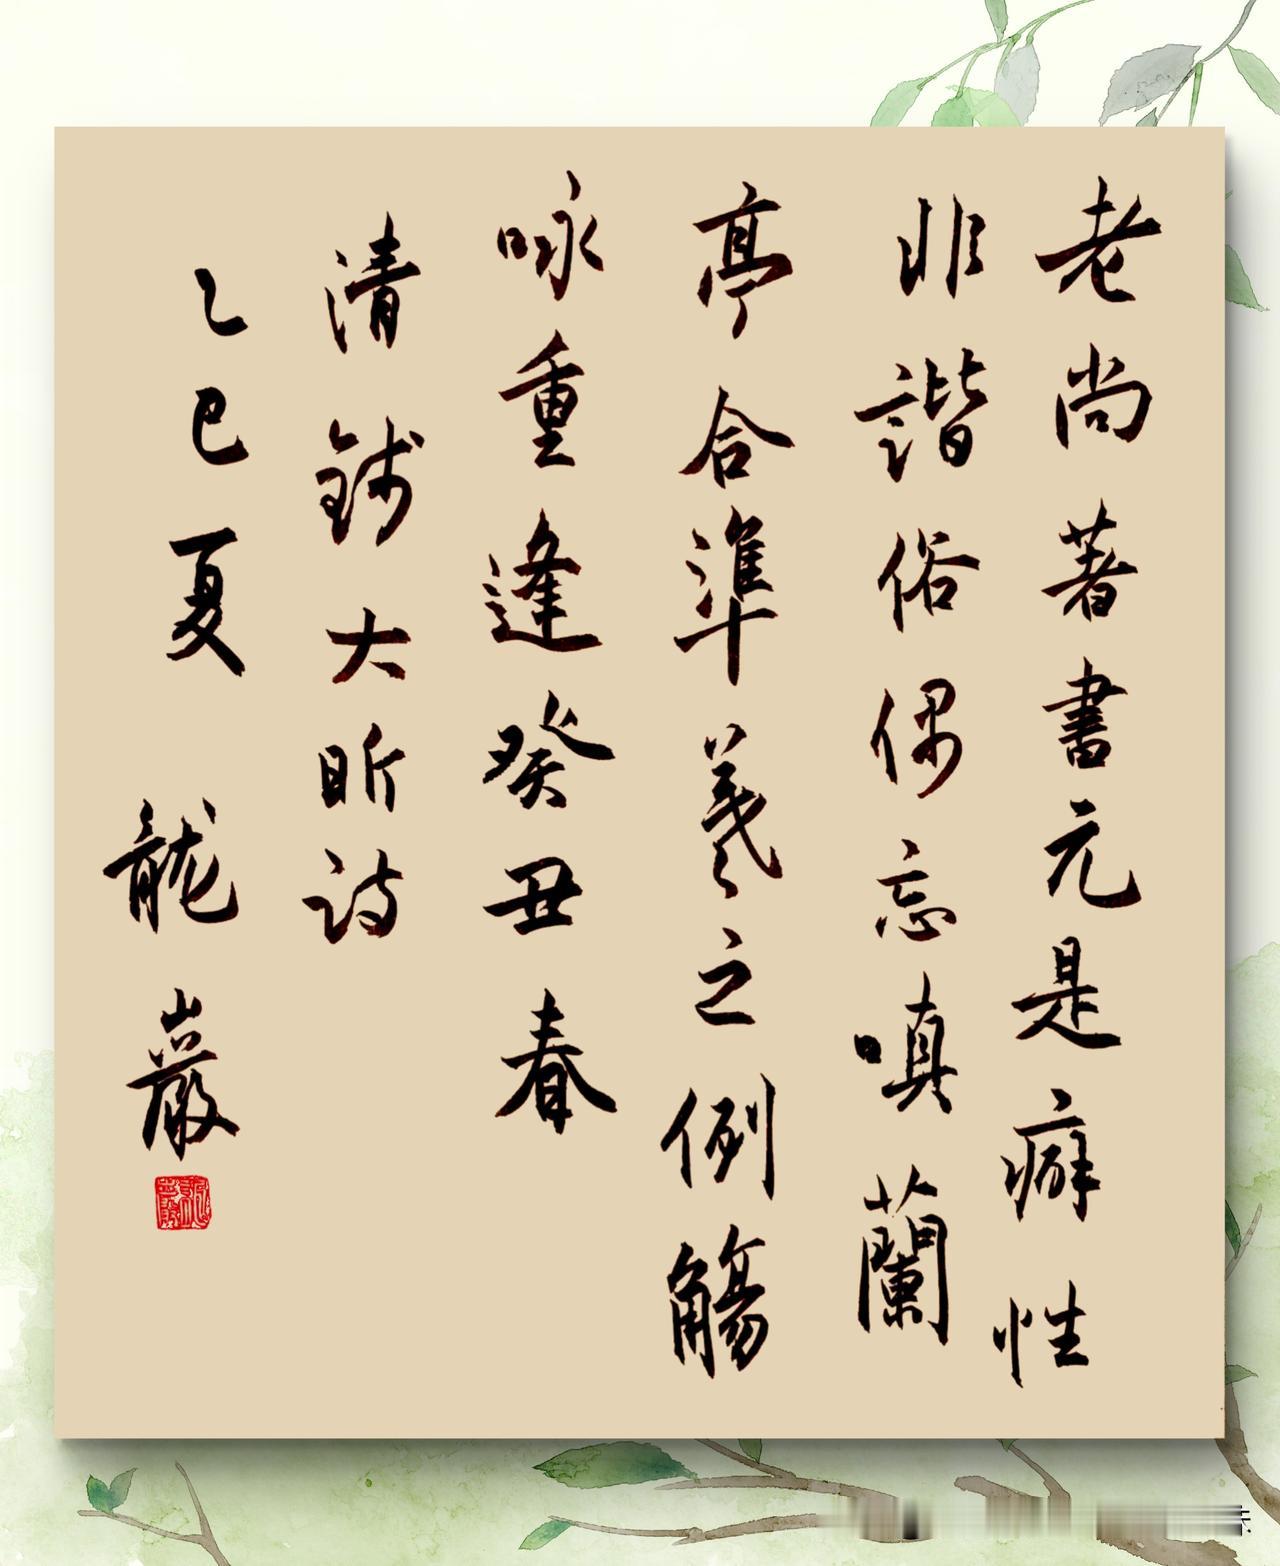 老尚著書元是癖性
非諧俗偶忘嗔蘭
亭合準羲之例觴
咏重逢癸丑春
清錢大昕詩
乙巳夏 龍巖